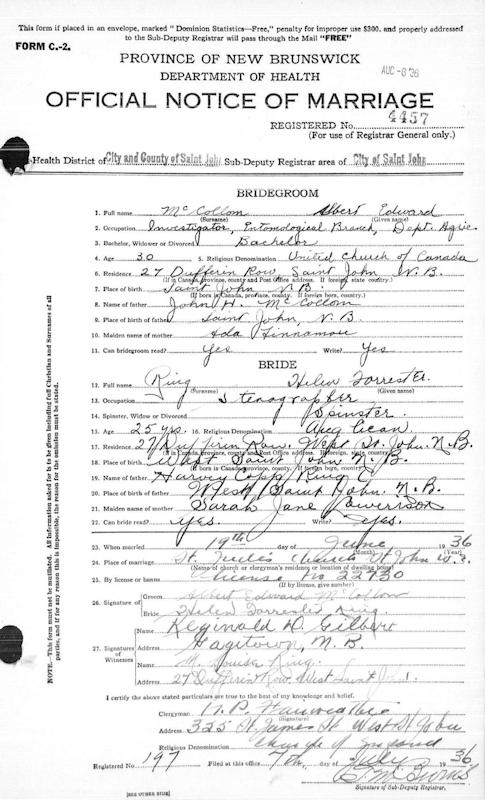 This form if placed in an envelope, marked "Dominion Statistics—Free," penalty for improper use $300, and properly addressed
to the Sub-Deputy Registrar will pass through the Mail "FREE"
FORM C.-2.
PROVINCE OF NEW BRUNSWICK
DEPARTMENT OF HEALTH
AUG -6 '36
OFFICIAL NOTICE OF MARRIAGE
REGISTERED No. 4457
(For use of Registrar General only.)
Health District of City and County of Saint John Sub-Deputy Registrar area of City of Saint John
BRIDEGROOM
1. Full name McCollom Albert Edward
(Surname) (Given name)
2. Occupation Investigator, Entomological Branch, Dept. Agric.
3. Bachelor, Widower or Divorced Bachelor
4. Age 30 5. Religious Denomination United Church of Canada
6. Residence 27 Dufferin Row Saint John N.B.
(If in Canada, province, county and Post Office address. If foreign, state country)
7. Place of birth Saint John N.B.
(If born in Canada, province, county. If foreign born, country)
8. Name of father John H. McCollom
9. Place of birth of father Saint John, N.B.
10. Maiden name of mother Ada Finnamore
11. Can bridegroom read? Yes Write? Yes
BRIDE
12. Full name Ring Helen Forrester
(Surname) (Given name)
13. Occupation Stenographer
14. Spinster, Widow or Divorced Spinster
15. Age 25 yrs. 16. Religious Denomination Anglican
17. Residence 27 Dufferin Row, West St. John. N.B.
(If in Canada, province, county and Post Office address. If foreign, state country)
18. Place of birth West Saint John N.B.
(If born in Canada, province, county. If foreign born, country)
19. Name of father Harvey Copp Ring
20. Place of birth of father West Saint John. N.B.
21. Maiden name of mother Sarah Jane
22. Can bride read? Yes. Write? Yes.
23. When married 19th day of June 1936
(Month) (Year)
24. Place of marriage St. Jude's Church St John W.
(Name of church or clergyman's residence or location of dwelling house)
25. By license or banns License No 22730
(If by license, give number)
26. Signature of
Groom Albert Edward McCollom
Bride Helen Forrester Ring
27. Signatures of Witnesses
Name Reginald D. Gilbert
Address Gagetown, N.B.
Name M. Louise Ring.
Address 27 Dufferin Row, West Saint John.
I certify the above stated particulars are true to the best of my knowledge and belief.
Clergyman
(Signature)
Address 325 St. James St West St John
Religious Denomination Church of England
Registered No. 197 Filed at this office 7th day of July 1936
Signature of Sub-Deputy Registrar.
[SEE OTHER SIDE]
NOTE.—This form must not be mutilated. All Information asked for is to be given including full Christian and Surnames of all
parties, and if for any reason this is impossible, the reason for the omission must be stated.